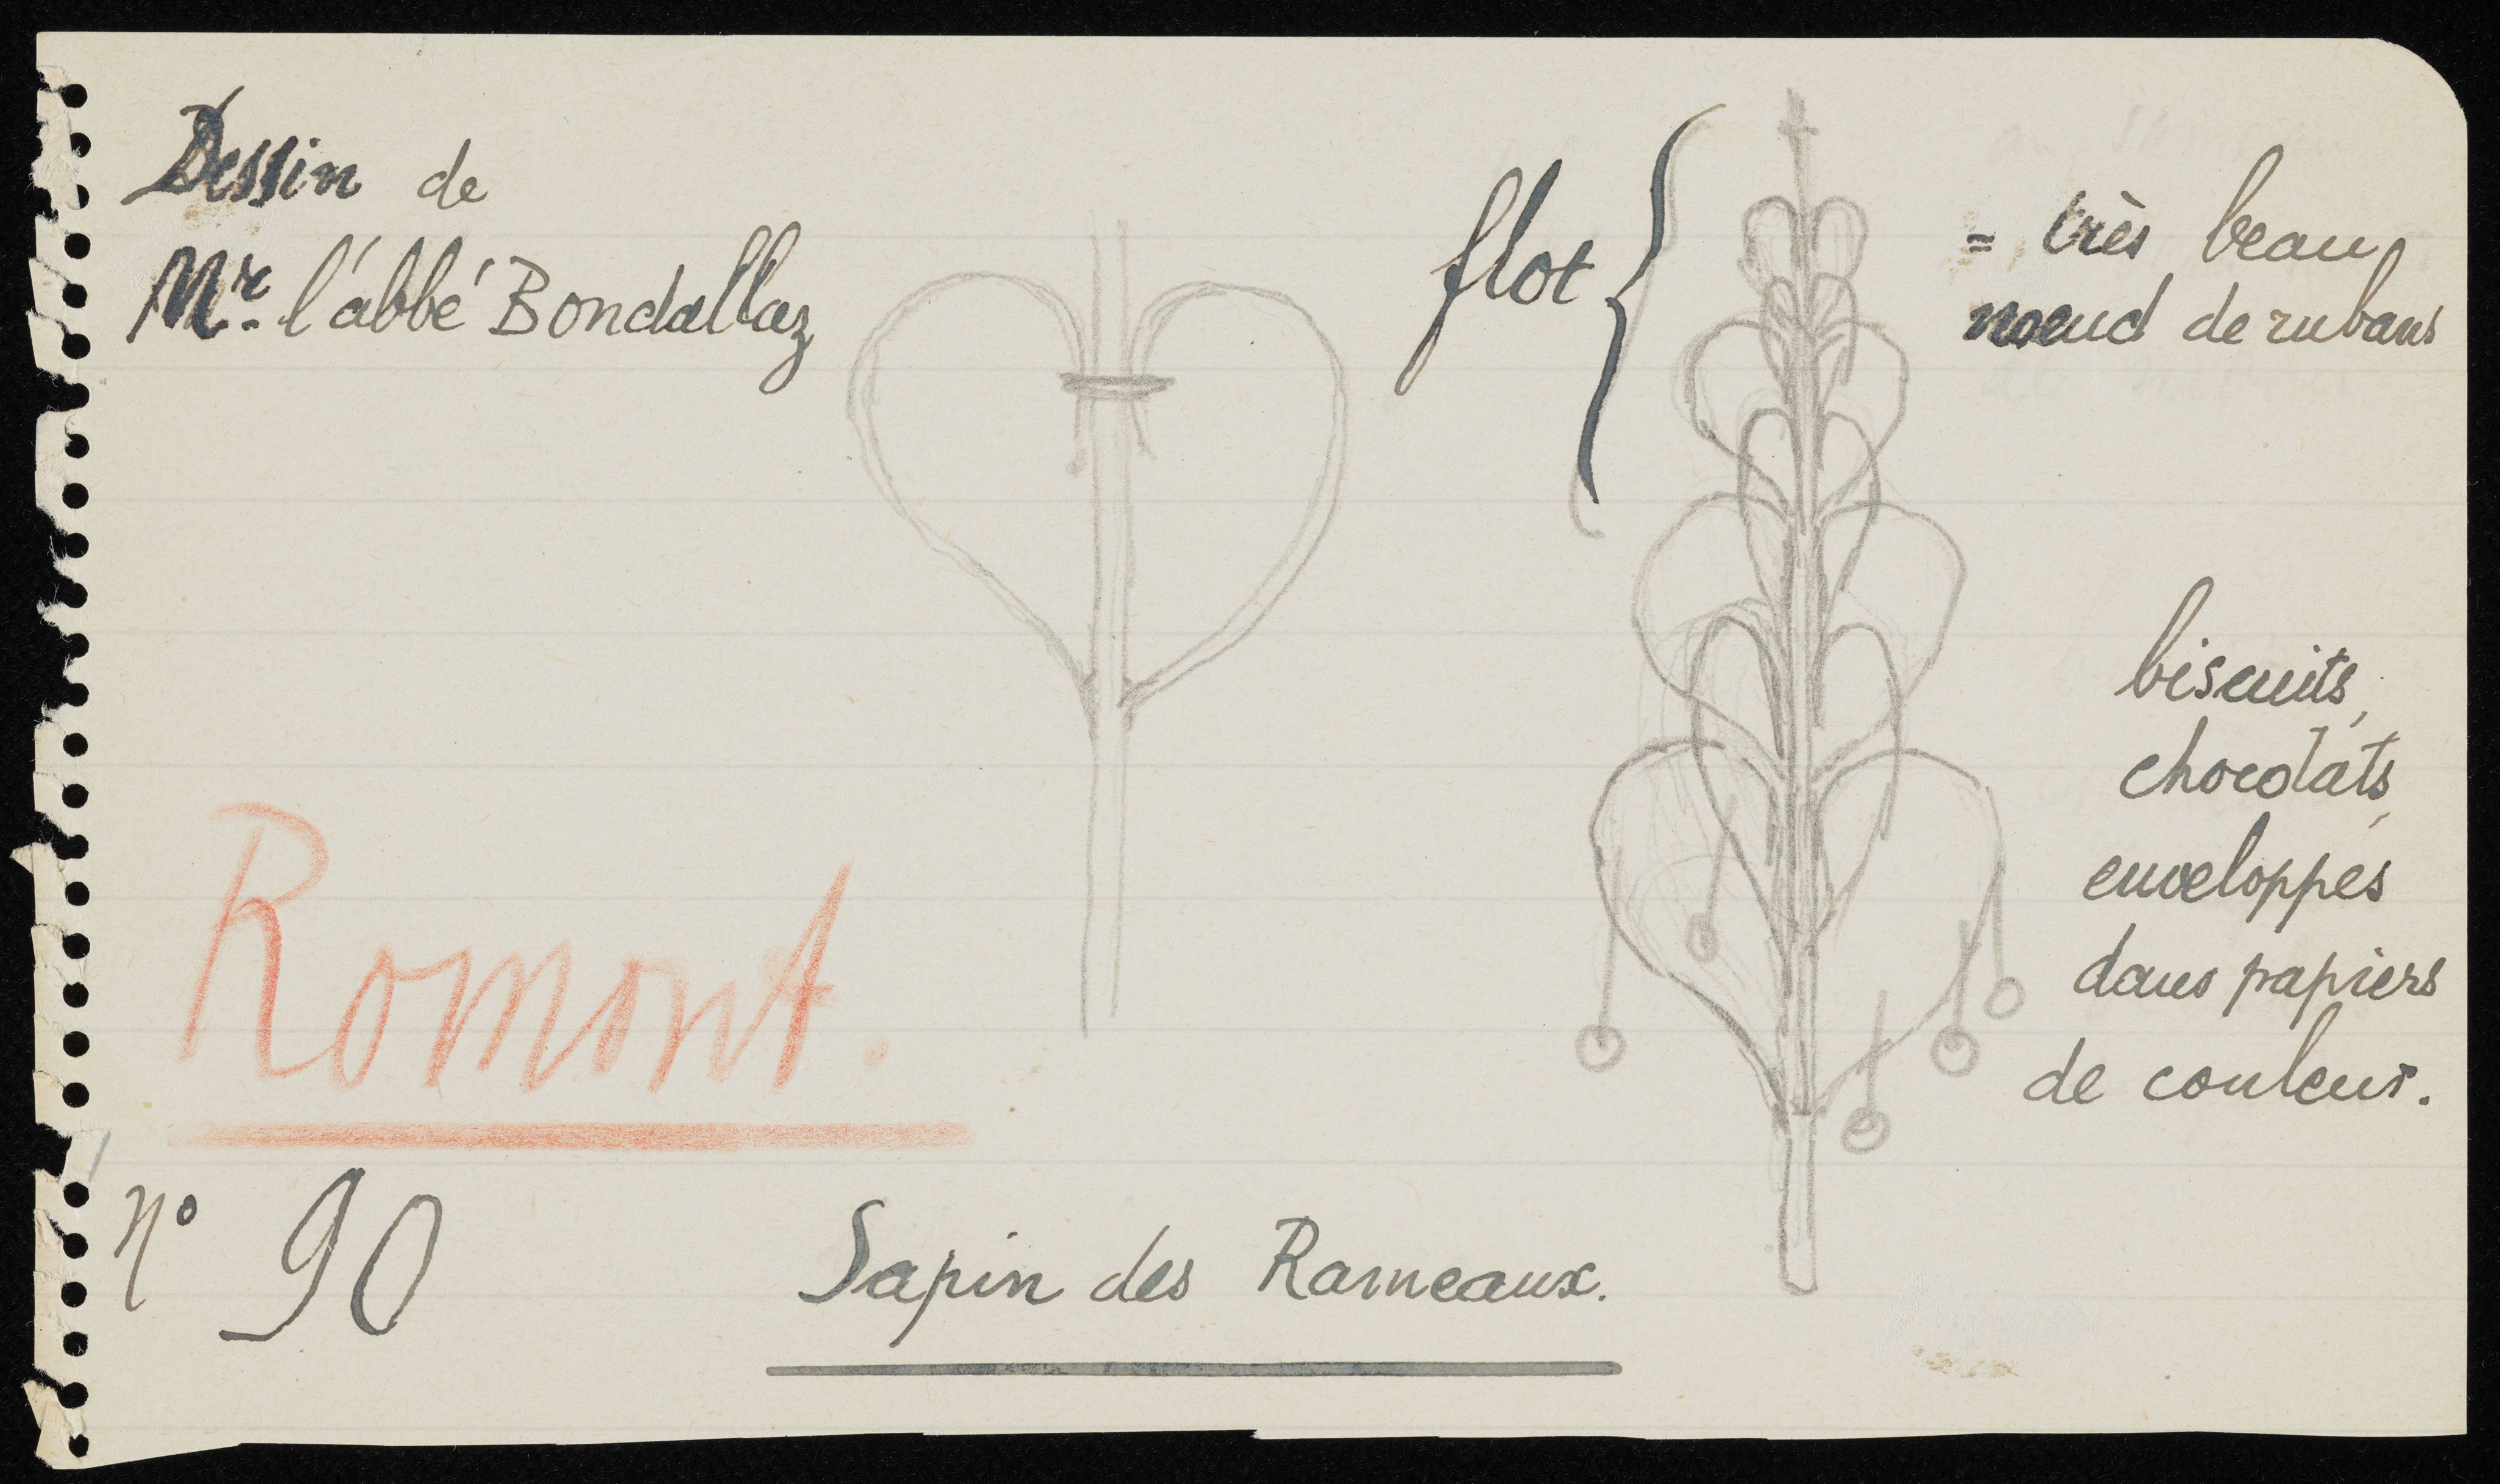 Dessin de
Mr. l'abbé Bondallaz
flot
= très beau
noeud de rubans
biscuits,
chocolats,
enveloppés
dans papiers
de couleur.
Romont.
No 90
Sapin des Rameaux.